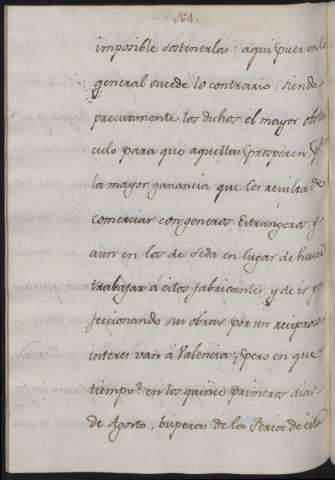 104.
imposible sostenerlas; aqui pues en lo
general sucede lo contrario, siendo
precisamente los dichos el mayor obsta
culo para que aquellas prosperen, pr.
la mayor ganancia que les resulta de
comerciar con generos Extrangeros, y
aun en los de seda en lugar de hacer
trabajar á estos fabricantes, y de ir per
feccionando sus obras por un reciproco
interes van á Valencia; pero en que
tiempo? en los quince primeros dias
de Agosto, visperas de la Feria de esta